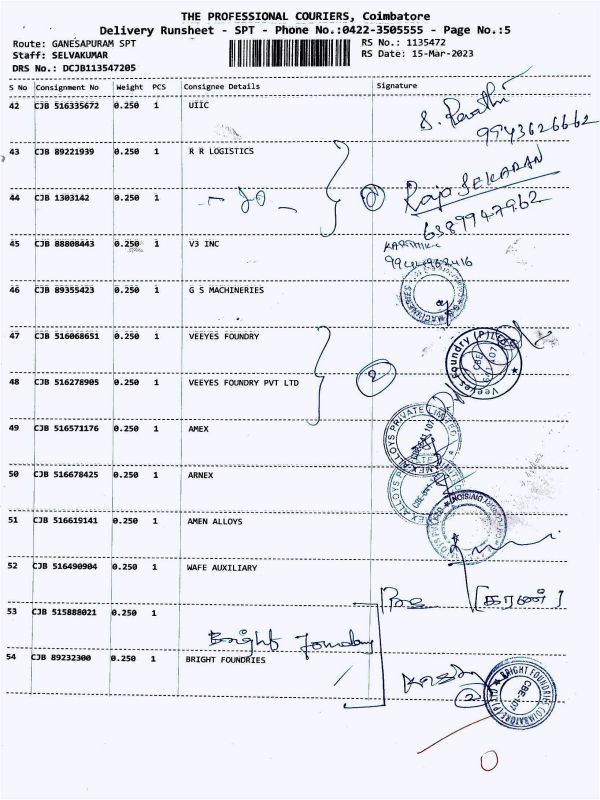 THE PROFESSIONAL COURIERS, Coimbatore
Delivery Runsheet - SPT - Phone No.:0422-3505555 - Page No.:5
Route: GANESAPURAM SPT
Staff: SELVAKUMAR
DRS No.: DCJB113547205
RS No.: 1135472
RS Date: 15-Mar-2023
S No Consignment No Weight PCS Consignee Details Signature
42 CJB 516335672 0.250 1 UIIC
S. Revathi
9943626662
43 CJB 89221939 0.250 1 R R LOGISTICS
44 CJB 1303142 0.250 1
Raja SEKARAN
6389947962
45 CJB 88808443 0.250 1 V3 INC
46 CJB 89355423 0.250 1 G S MACHINERIES
47 CJB 516068651 0.250 1 VEEYES FOUNDRY
Veeyes Foundry (P)
48 CJB 516278905 0.250 1 VEEYES FOUNDRY PVT LTD
2
49 CJB 516571176 0.250 1 AMEX
AMEX ALLOYS PRIVATE LIMITED
50 CJB 516678425 0.250 1 ARNEX
51 CJB 516619141 0.250 1 AMEN ALLOYS
52 CJB 516490904 0.250 1 WAFE AUXILIARY
53 CJB 515888021 0.250 1
Bright Foundry
54 CJB 89232300 0.250 1 BRIGHT FOUNDRIES
BRIGHT FOUNDRIES COIMBATORE (P) LTD
CBE-107
2